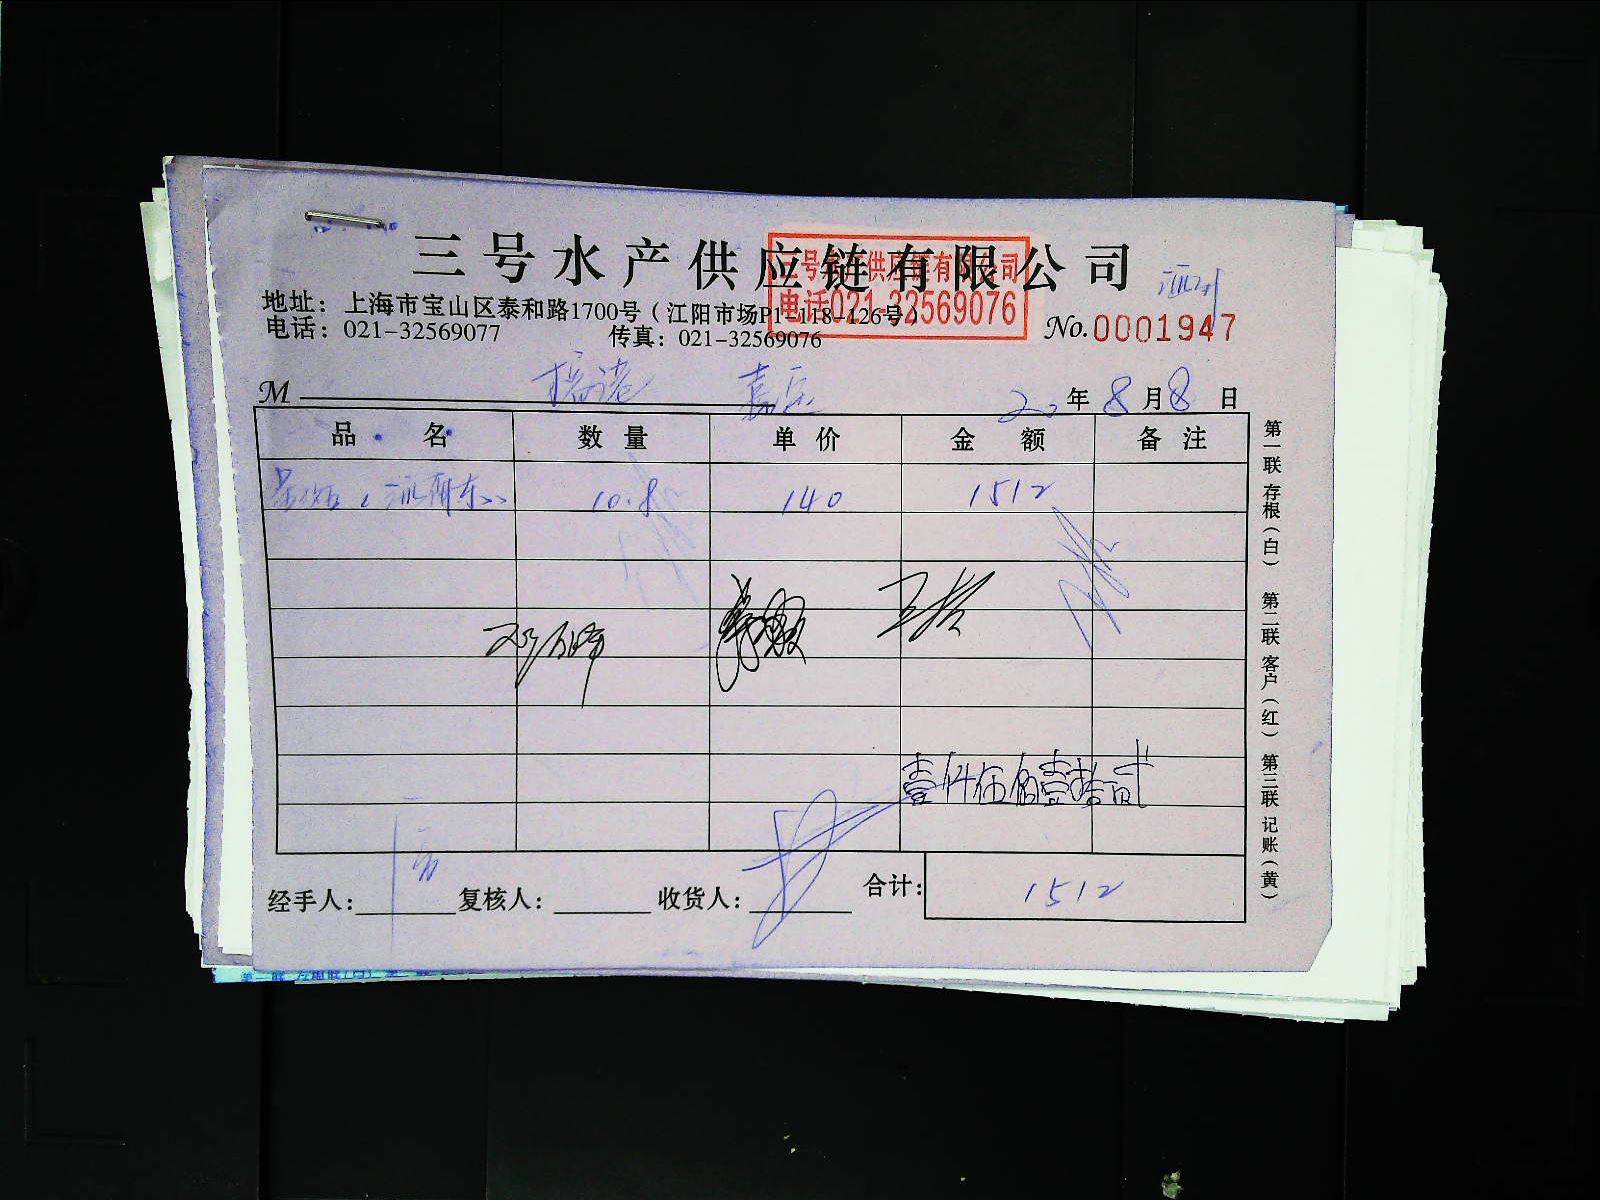 三号水产供应链有限公司
三号水产供应链有限公司
电话021-32569076
地址：上海市宝山区泰和路1700号（江阳市场P1-118-126号）
电话：021-32569077 传真：021-32569076
No.0001947
M
20年8月8日
品名 数量 单价 金额 备注
10.8 140 1512
壹仟伍佰壹拾贰
经手人： 复核人： 收货人： 合计：1512
第一联 存根（白） 第二联 客户（红） 第三联 记账（黄）